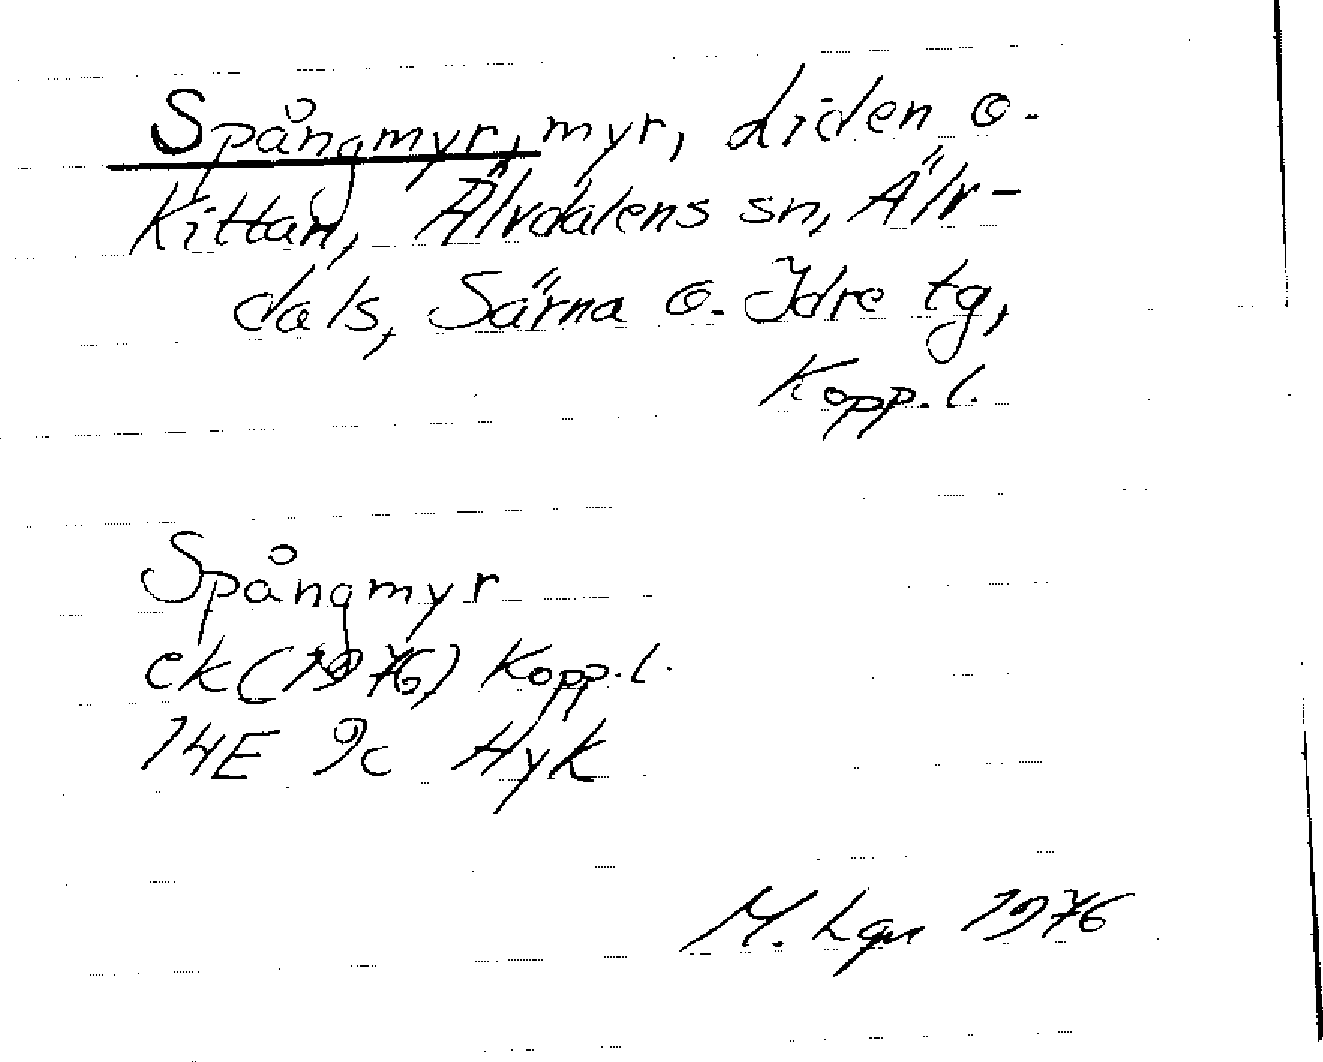 Spångmyr, myr, Liden o.
Kittan, Älvdalens sn, Älv-
dals, Särna o. Idre tg,
Kopp.l.
Spångmyr
ek (1976) Kopp.l.
14E 9c Hyk
M. Lgn 1976